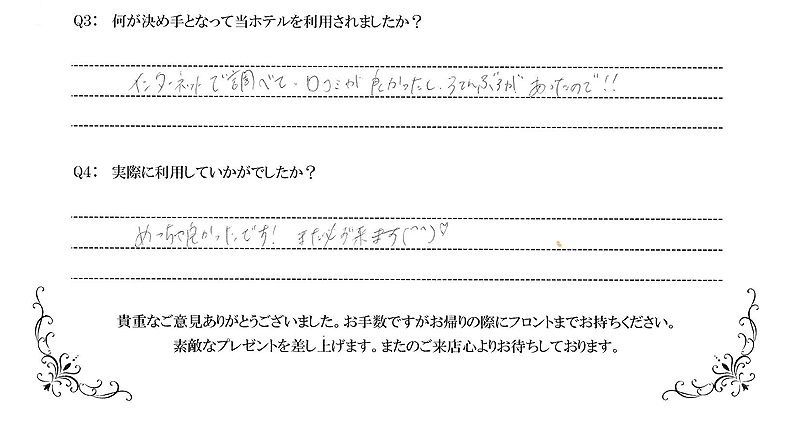 Q3: 何が決め手となって当ホテルを利用されましたか？
インターネットで調べて、口コミが良かったし、ろてんぶろが あったので!!
Q4: 実際に利用していかがでしたか？
めっちゃ良かったです! また必ず来ます(^^)♡
貴重なご意見ありがとうございました。お手数ですがお帰りの際にフロントまでお持ちください。
素敵なプレゼントを差し上げます。またのご来店心よりお待ちしております。